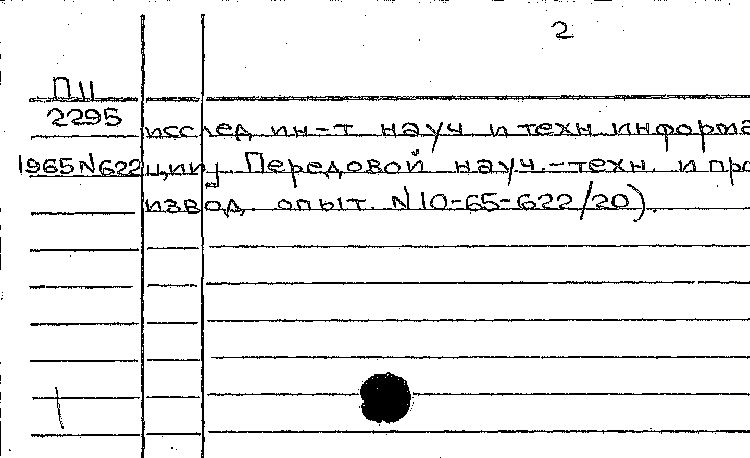 2
П11
2295
исслед ин-т науч и техн информа
1965 N622 ции, Передовой науч.-техн. и про
извод. опыт. N 10-65-622/20).